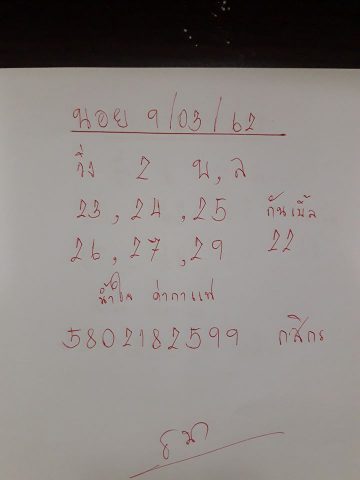 นอย 9/03/62
วิ่ง 2 บ, ล
23, 24, 25 กันเบิ้ล
26, 27, 29 22
น้ำใจ ค่ากาแฟ
5802182599 กสิกร